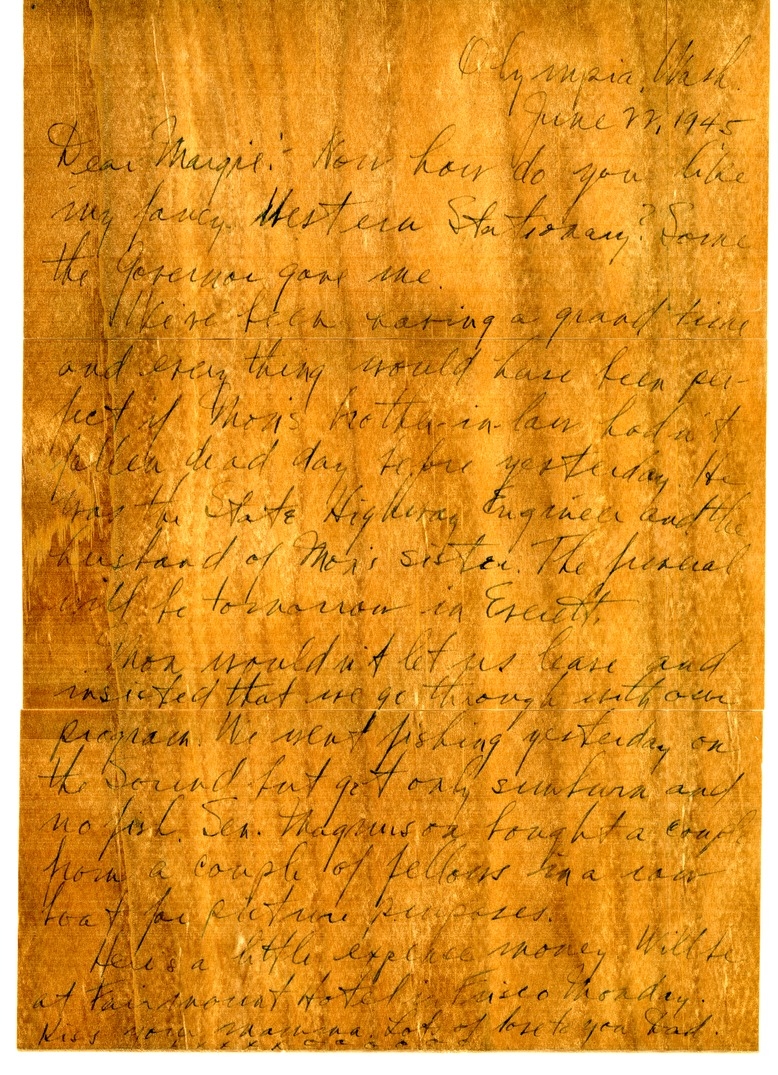 Olympia, Wash.
June 22, 1945
Dear Margie:- Now how do you like
my fancy Western Stationary? Some
the Governor gave me.
We've been having a grand time
and everything would have been per-
fect if Mon's brother-in-law hadn't
fallen dead day before yesterday. He
was the State Highway Engineer and the
husband of Mon's sister. The funeral
will be tomorrow in Everett.
Mon wouldn't let us leave and
insisted that we go through with our
program. We went fishing yesterday on
the Sound but got only sunburn and
no fish. Sen. Magnuson bought a couple
from a couple of fellows in a row
boat for picture purposes.
Here's a little expense money. Will be
at Fairmount Hotel in Frisco Monday.
Kiss your mamma. Lots of love to you Dad.
x x x x x o o o o o o